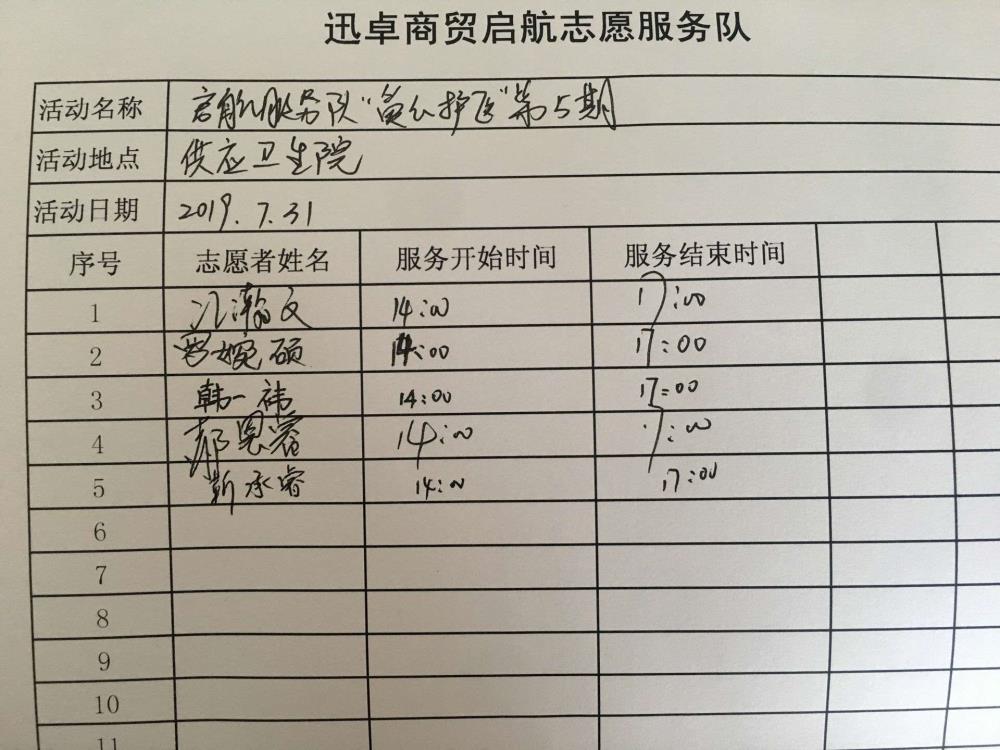 迅卓商贸启航志愿服务队
活动名称 启航服务队“ 护医”第5期
活动地点 供应卫生院
活动日期 2019.7.31
序号 志愿者姓名 服务开始时间 服务结束时间
1 汪瀚文 14:00 17:00
2 婉硕 14:00 17:00
3 韩一祎 14:00 17:00
4 郝恩蓉 14:00 17:00
5 靳承睿 14:00 17:00
6
7
8
9
10
11